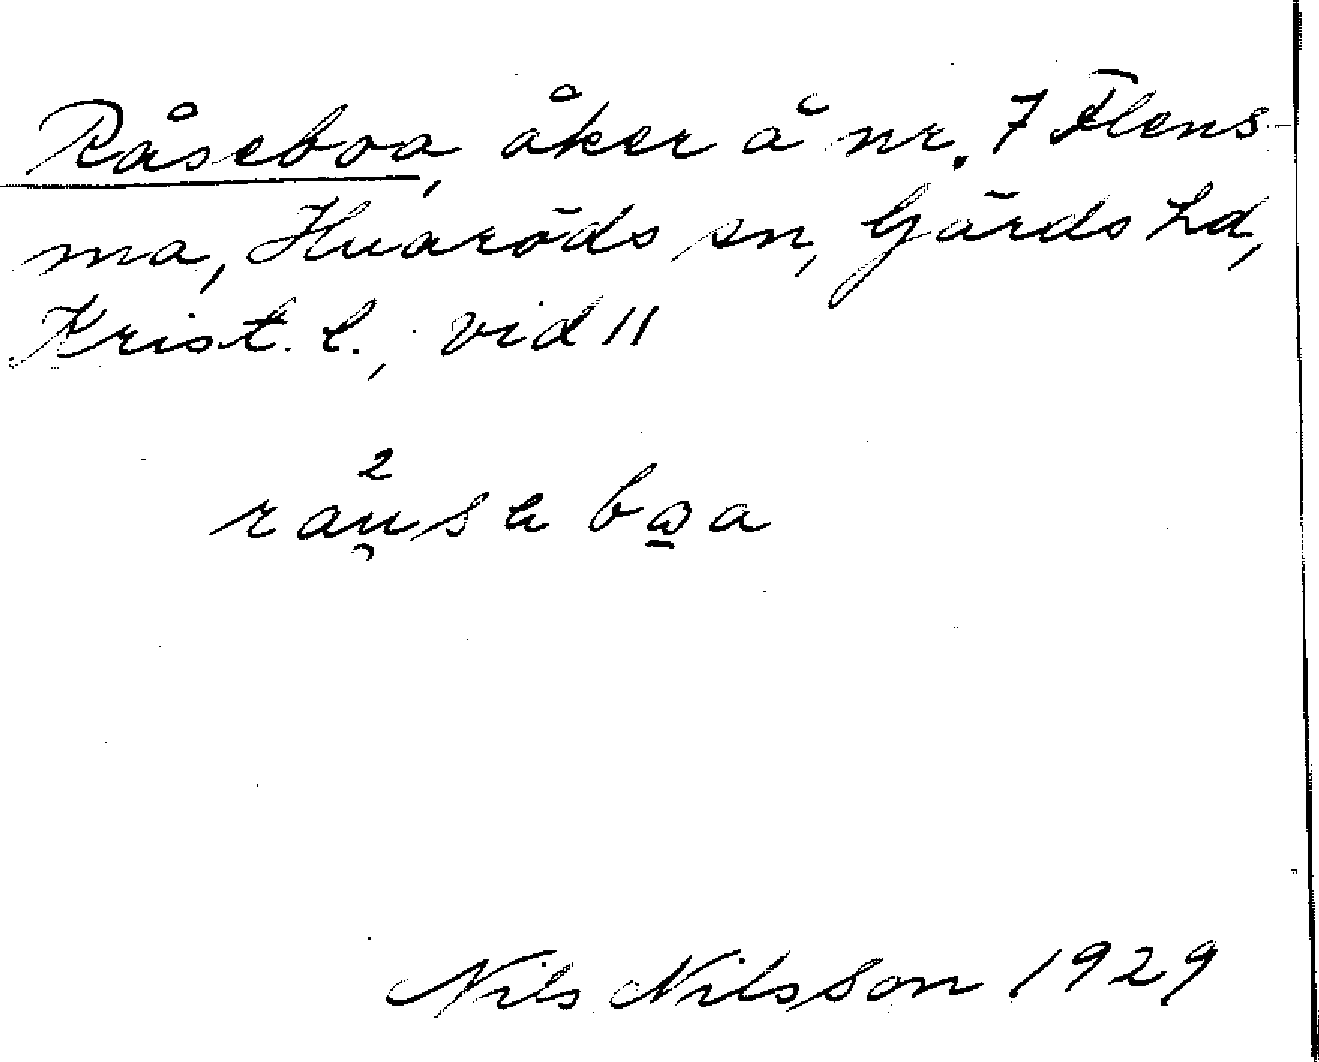 Råseboa, åker å nr. 7 Flens-
ma, Huaröds sn, Gärds hd,
Krist. l., vid 11
2
råu̯sa bωa
Nils Nilsson 1929